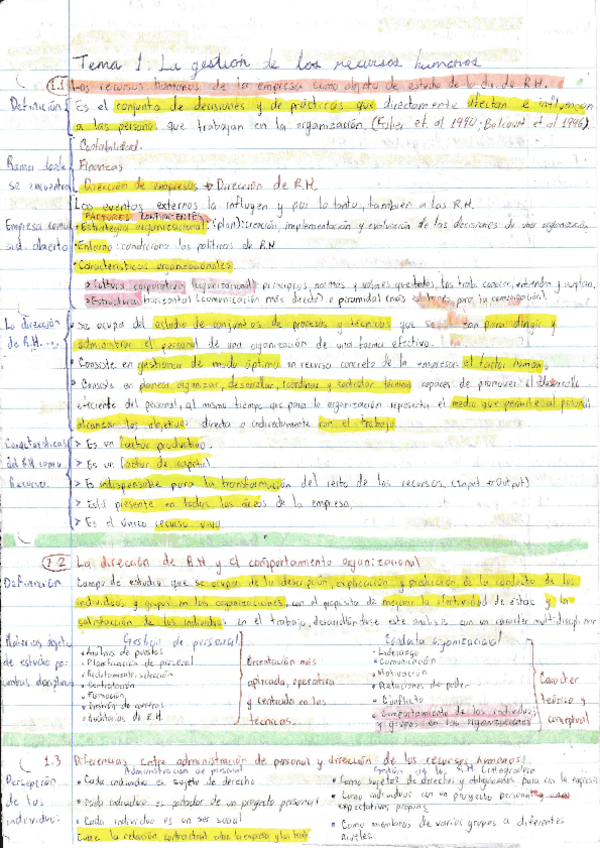 Tema 1: La gestión de los recursos humanos
1.1 Los recursos humanos de la empresa como objeto de estudio de la dir. de R.H.
Definición
Es el conjunto de decisiones y de prácticas que directamente afectan e influencian
a las personas que trabajan en la organización. (Fisher et. al 1990; Belcourt et al 1996)
Ramas donde
se encuentra
Contabilidad.
Finanzas
Dirección de empresas → Dirección de R.H.
Empresa como
sist. abierto
Los eventos externos la influyen y por lo tanto, también a los R.H.
FACTORES CONTINGENTES
• Estrategia organizacional: (plan): creación, implementación y evaluación de las decisiones de una organización
• Entorno: condiciona las políticas de RH
• Características organizacionales
> Cultura corporativa (organizacional): principios, normas y valores que todos los trab. conocen, entienden y
> Estructura: horizontal (comunicación más directa) o piramidal (más para la comunicación)
La dirección
de R.H....
• Se ocupa del estudio de conjuntos de procesos y técnicas que se para dirigir y
administrar el personal de una organización de una forma efectiva.
• Consiste en gestionar de modo óptimo un recurso concreto de la empresa: el factor humano.
• Consiste en planear, organizar, desarrollar, coordinar y controlar técnicas capaces de promover el desarrollo
eficiente del personal, al mismo tiempo que para la organización representa el medio que permite al personal
alcanzar los objetivos directa o indirectamente con el trabajo.
Características
del RH como
Recurso
> Es un factor productivo.
> Es un factor de capital
> Es indispensable para la transformación del resto de los recursos. (Input → Output)
> Está presente en todas las áreas de la empresa.
> Es el único recurso vivo
1.2 La dirección de R.H y el comportamiento organizacional
Definición
Campo de estudio que se ocupa de la descripción, explicación y predicción de la conducta de los
individuos y grupos en las organizaciones, con el propósito de mejorar la efectividad de éstas y la
satisfacción de los individuos en el trabajo, desarrollándose este análisis con un carácter multidisciplinar
Materias objeto
de estudio por
ambas disciplinas
Gestión de personal
• Análisis de puestos
• Planificación de personal
• Reclutamiento, selección
• Contratación
• Formación
• de carreras
• Auditorías de R.H.
Orientación más
aplicada, operativa
y centrada en las
técnicas.
Conducta organizacional
• Liderazgo
• Comunicación
• Motivación
• Relaciones de poder
• Conflicto
• Comportamiento de los individuos
y grupos en las organizaciones
Carácter
teórico y
conceptual
1.3 Diferencias entre administración de personal y dirección de los recursos humanos:
Percepción
de los
individuos:
Administración de personal
• Cada individuo es sujeto de derecho
• Cada individuo es portador de un proyecto personal
• Cada individuo es un ser social
Gestión de los R.H integradora
• Como sujetos de derechos y obligaciones para con la empresa
• Como individuos con un proyecto personal y con
expectativas propias
• Como miembros de varios grupos a diferentes
niveles.
la relación contractual entre la empresa y los trab.